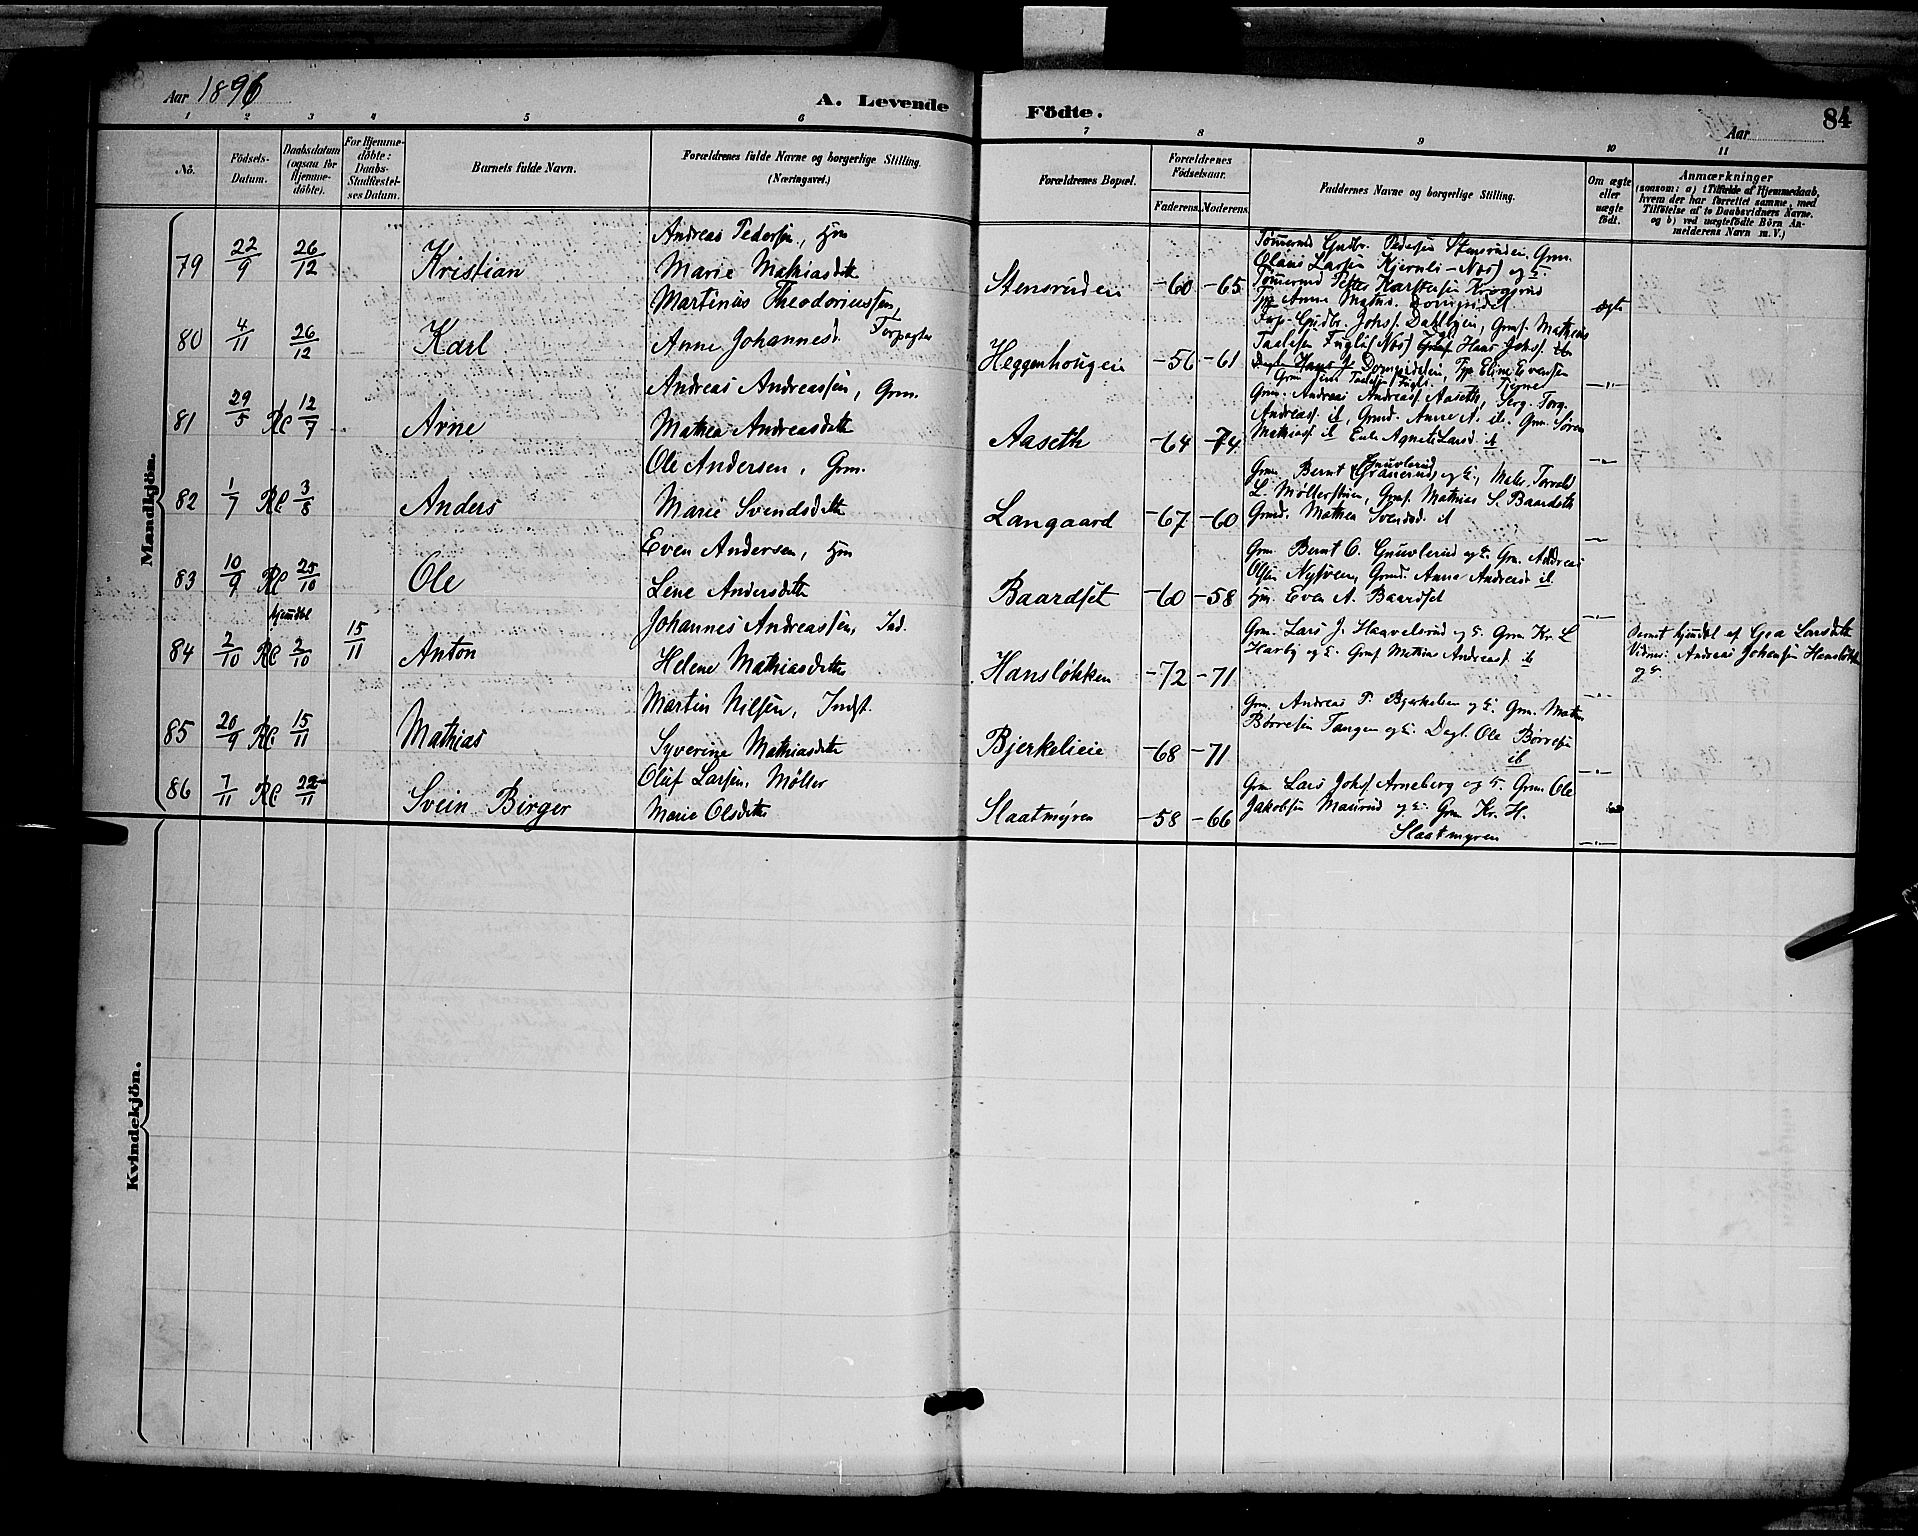 Aar 1896
A. Levende
Födte.
Aar
84
1 2 3 4 5 6 7 8 9 10 11
No.
Födsels-
Datum.
Daabsdatum
(ogsaa for
Hjemme-
döbte).
For Hjemme-
döbte:
Daabs-
Stadfæstel-
ses Datum.
Barnets fulde Navn.
Forældrenes fulde Navne og borgerlige Stilling.
(Næringsvei.)
Forældrenes Bopæl.
Forældrenes
Födselsaar.
Faderens. Moderens.
Faddernes Navne og borgerlige Stilling.
Om ægte
eller
uægte
födt.
Anmærkninger
(saasom: a) i Tilfælde af Hjemmedaab,
hvem der har forrettet samme, med
Tilföielse af to Daabsvidners Navne,
og b) ved uægtefödte Börn An-
melderens Navn m. V.)
Mandkjön.
79 22/9 26/12 Kristian
Andreas Pedersen, Hm
Marie Mathiasdtr
Stensruden -60 -65
Tömmermd Gudbr. Pedersen Stensruden, Grm.
Olaus Larsen Kjernli - Næs og
Tömmermd Petter Karstensen Krogsrud
Anne Maths.
ægte
80 4/11 26/12 Karl
Martinus Theodoriussen,
Forpagter
Anne Johannesd.
Heggenhougen -56 -61
Gudbr. Johs. Dahlbyen, Grms. Mathias
Hans Johs.
Eline Evensen
-"-
81 29/5 Rc 12/7 Arne
Andreas Andreassen, Grm.
Mathea Andreasdtr
Aaseth -64 -74
Grm. Andreas Andreass. Aaseth, Serg. Torg.
Andreass. ib, Grmd. Anne A. ib. Grm. Søren
Mathiass. ib Enke Agnete Larsd. ib
-"-
82 1/7 Rc 3/8 Anders
Ole Andersen, Grm.
Marie Svendsdtr
Langaard -67 -60
Gnuvlerud
Grm. Bernt og E., Maler Torvald
L. Møllerstuen, Grms. Mathias S. Baardseth
Grmd. Mathea Svendsd. ib
-"-
83 10/9 Rc 25/10 Ole
Even Andersen, Hm
Lene Andersdtr
Baardset -60 -58
Grm. Bernt O. Gnuvlerud og E. Grm. Andreas
Olsen Nystuen, Grmd. Anne Andersd. ib
Hm. Even A. Baardset
-"-
84 2/10 Rc hjemdøbt 2/10 15/11 Anton
Johannes Andreassen, Ind.
Helene Mathiasdtr
Hansløkken -72 -71
Grm. Lars J. Haavelsrud og E. Grm. Kr. L.
Harby og E. Grms. Mathias Andreass. ib
-"-
Bernt hjemdøbt af Gea Larsdtr
Vidner: Andreas Johansen Hansløkken
og E.
85 20/9 Rc 15/11 Mathias
Martin Nilsen, Indst.
Syverine Mathiasdtr
Bjerkelieie -68 -71
Grm. Andreas P. Bjerkelien og E. Grm. Mathias
Børresen Tangen og E. Dagl. Ole Børresen
ib
-"-
86 7/11 Rc 22/11 Svein Birger
Oluf Larsen, Møller
Marie Olsdtr
Slaatmyren -58 -66
Grm Lars Johs. Arneberg og E. Grm. Ole
Jakobsen Maurud og E. Grm Kr. H.
Slaatmyren
-"-
Kvindekjön.